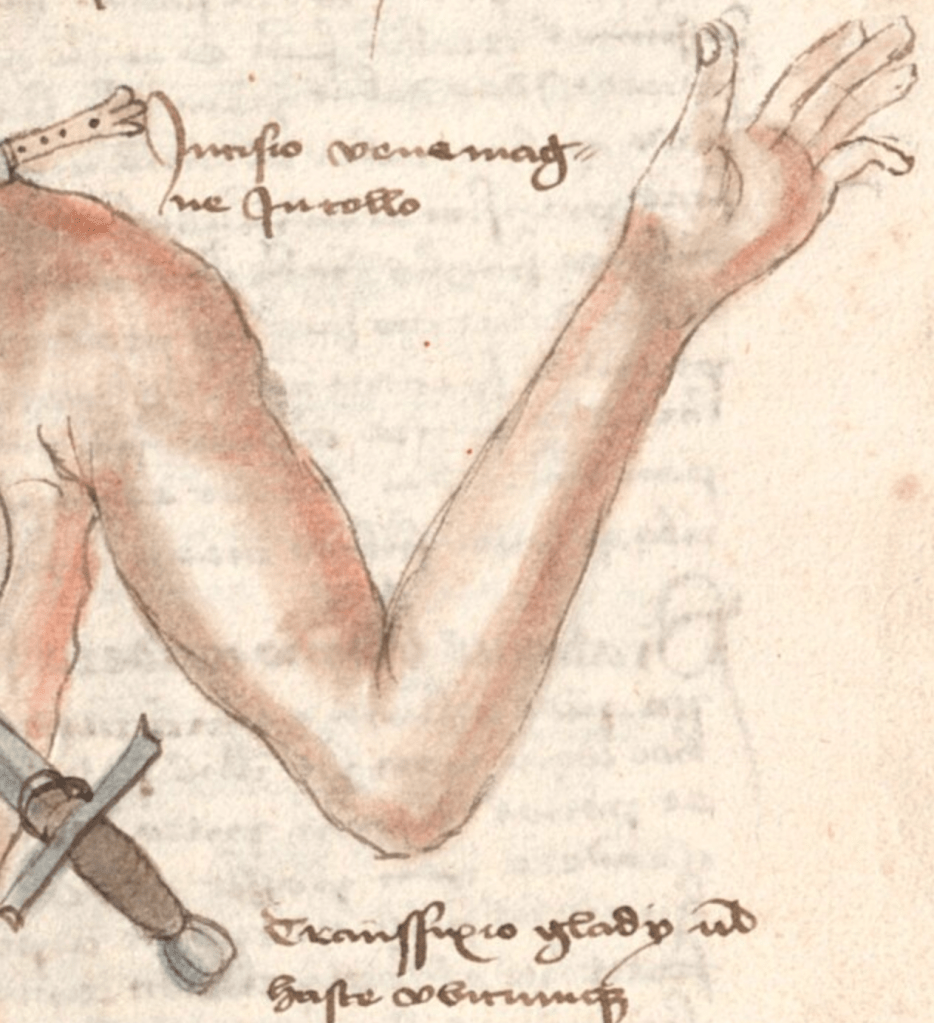 Incisio vene mag-
ne In collo
Transfixio glady ul
haste ubicumque